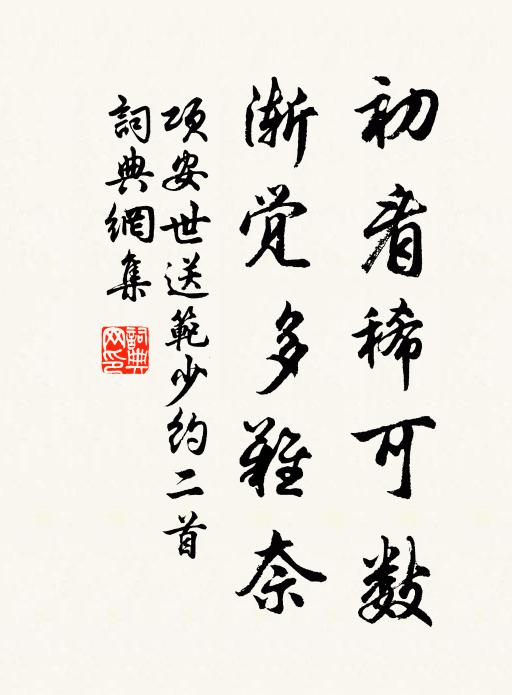 初看稀可数
渐觉多难奈
项安世送範少约二首
詞典網集
詞典网印